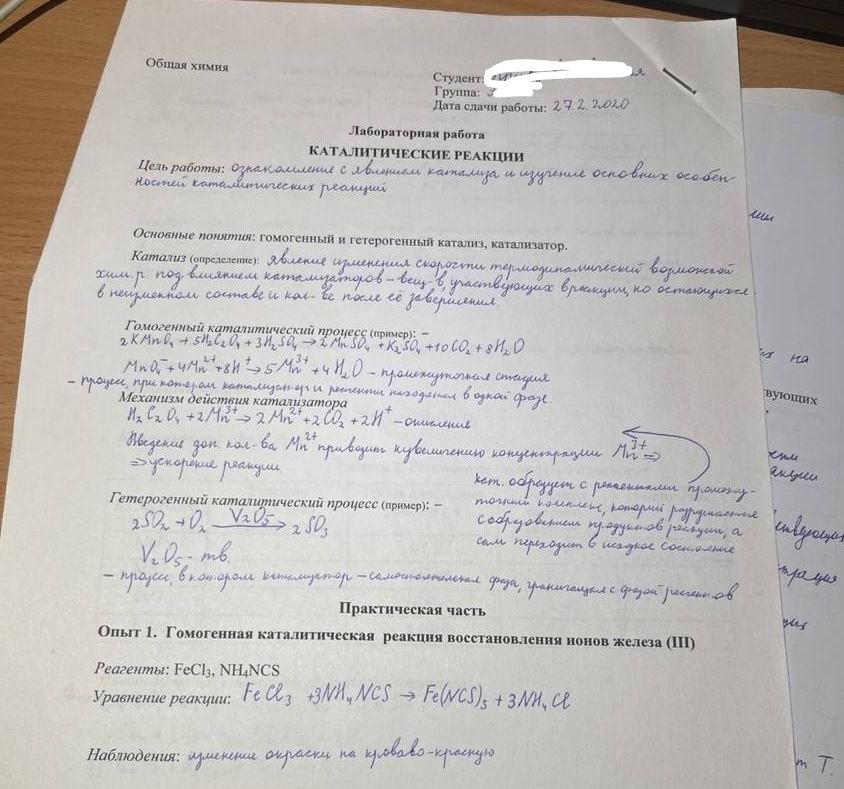 Общая химия
Студент:
Группа:
Дата сдачи работы: 27.2.2020
Лабораторная работа
КАТАЛИТИЧЕСКИЕ РЕАКЦИИ
Цель работы: ознакомление с явлением катализа и изучение основных особен-
ностей каталитических реакций
Основные понятия: гомогенный и гетерогенный катализ, катализатор.
Катализ (определение): явление изменения скорости термодинамический возможной
хим. р. под влиянием катализаторов – вещ-в, участвующих в реакции, но остающихся
в неизменном составе и кол-ве после её завершения.
Гомогенный каталитический процесс (пример): –
2KMnO₄ + 5H₂C₂O₄ + 3H₂SO₄ → 2MnSO₄ + K₂SO₄ + 10CO₂ + 8H₂O
MnO₄⁻ + 4Mn²⁺ + 8H⁺ → 5Mn³⁺ + 4H₂O – промежуточная стадия
– процесс, при котором катализатор и реагенты находятся в одной фазе.
Механизм действия катализатора
H₂C₂O₄ + 2Mn³⁺ → 2Mn²⁺ + 2CO₂ + 2H⁺ – окисление
Введение доп. кол-ва Mn²⁺ приводит к увеличению концентрации Mn³⁺ ⇒
⇒ ускорение реакции.
кат. образует с реагентами промежу-
точный комплекс, который разрушается
с образованием продуктов реакции, а
сам переходит в исходное состояние
Гетерогенный каталитический процесс (пример): –
2SO₂ + O₂ V₂O₅ → 2SO₃
V₂O₅ - тв.
– процесс, в котором катализатор – самостоятельная фаза, граничащая с фазой реагентов
Практическая часть
Опыт 1. Гомогенная каталитическая реакция восстановления ионов железа (III)
Реагенты: FeCl₃, NH₄NCS
Уравнение реакции: FeCl₃ + 3NH₄NCS → Fe(NCS)₃ + 3NH₄Cl
Наблюдения: изменение окраски на кроваво-красную
на
вующих
т Т.